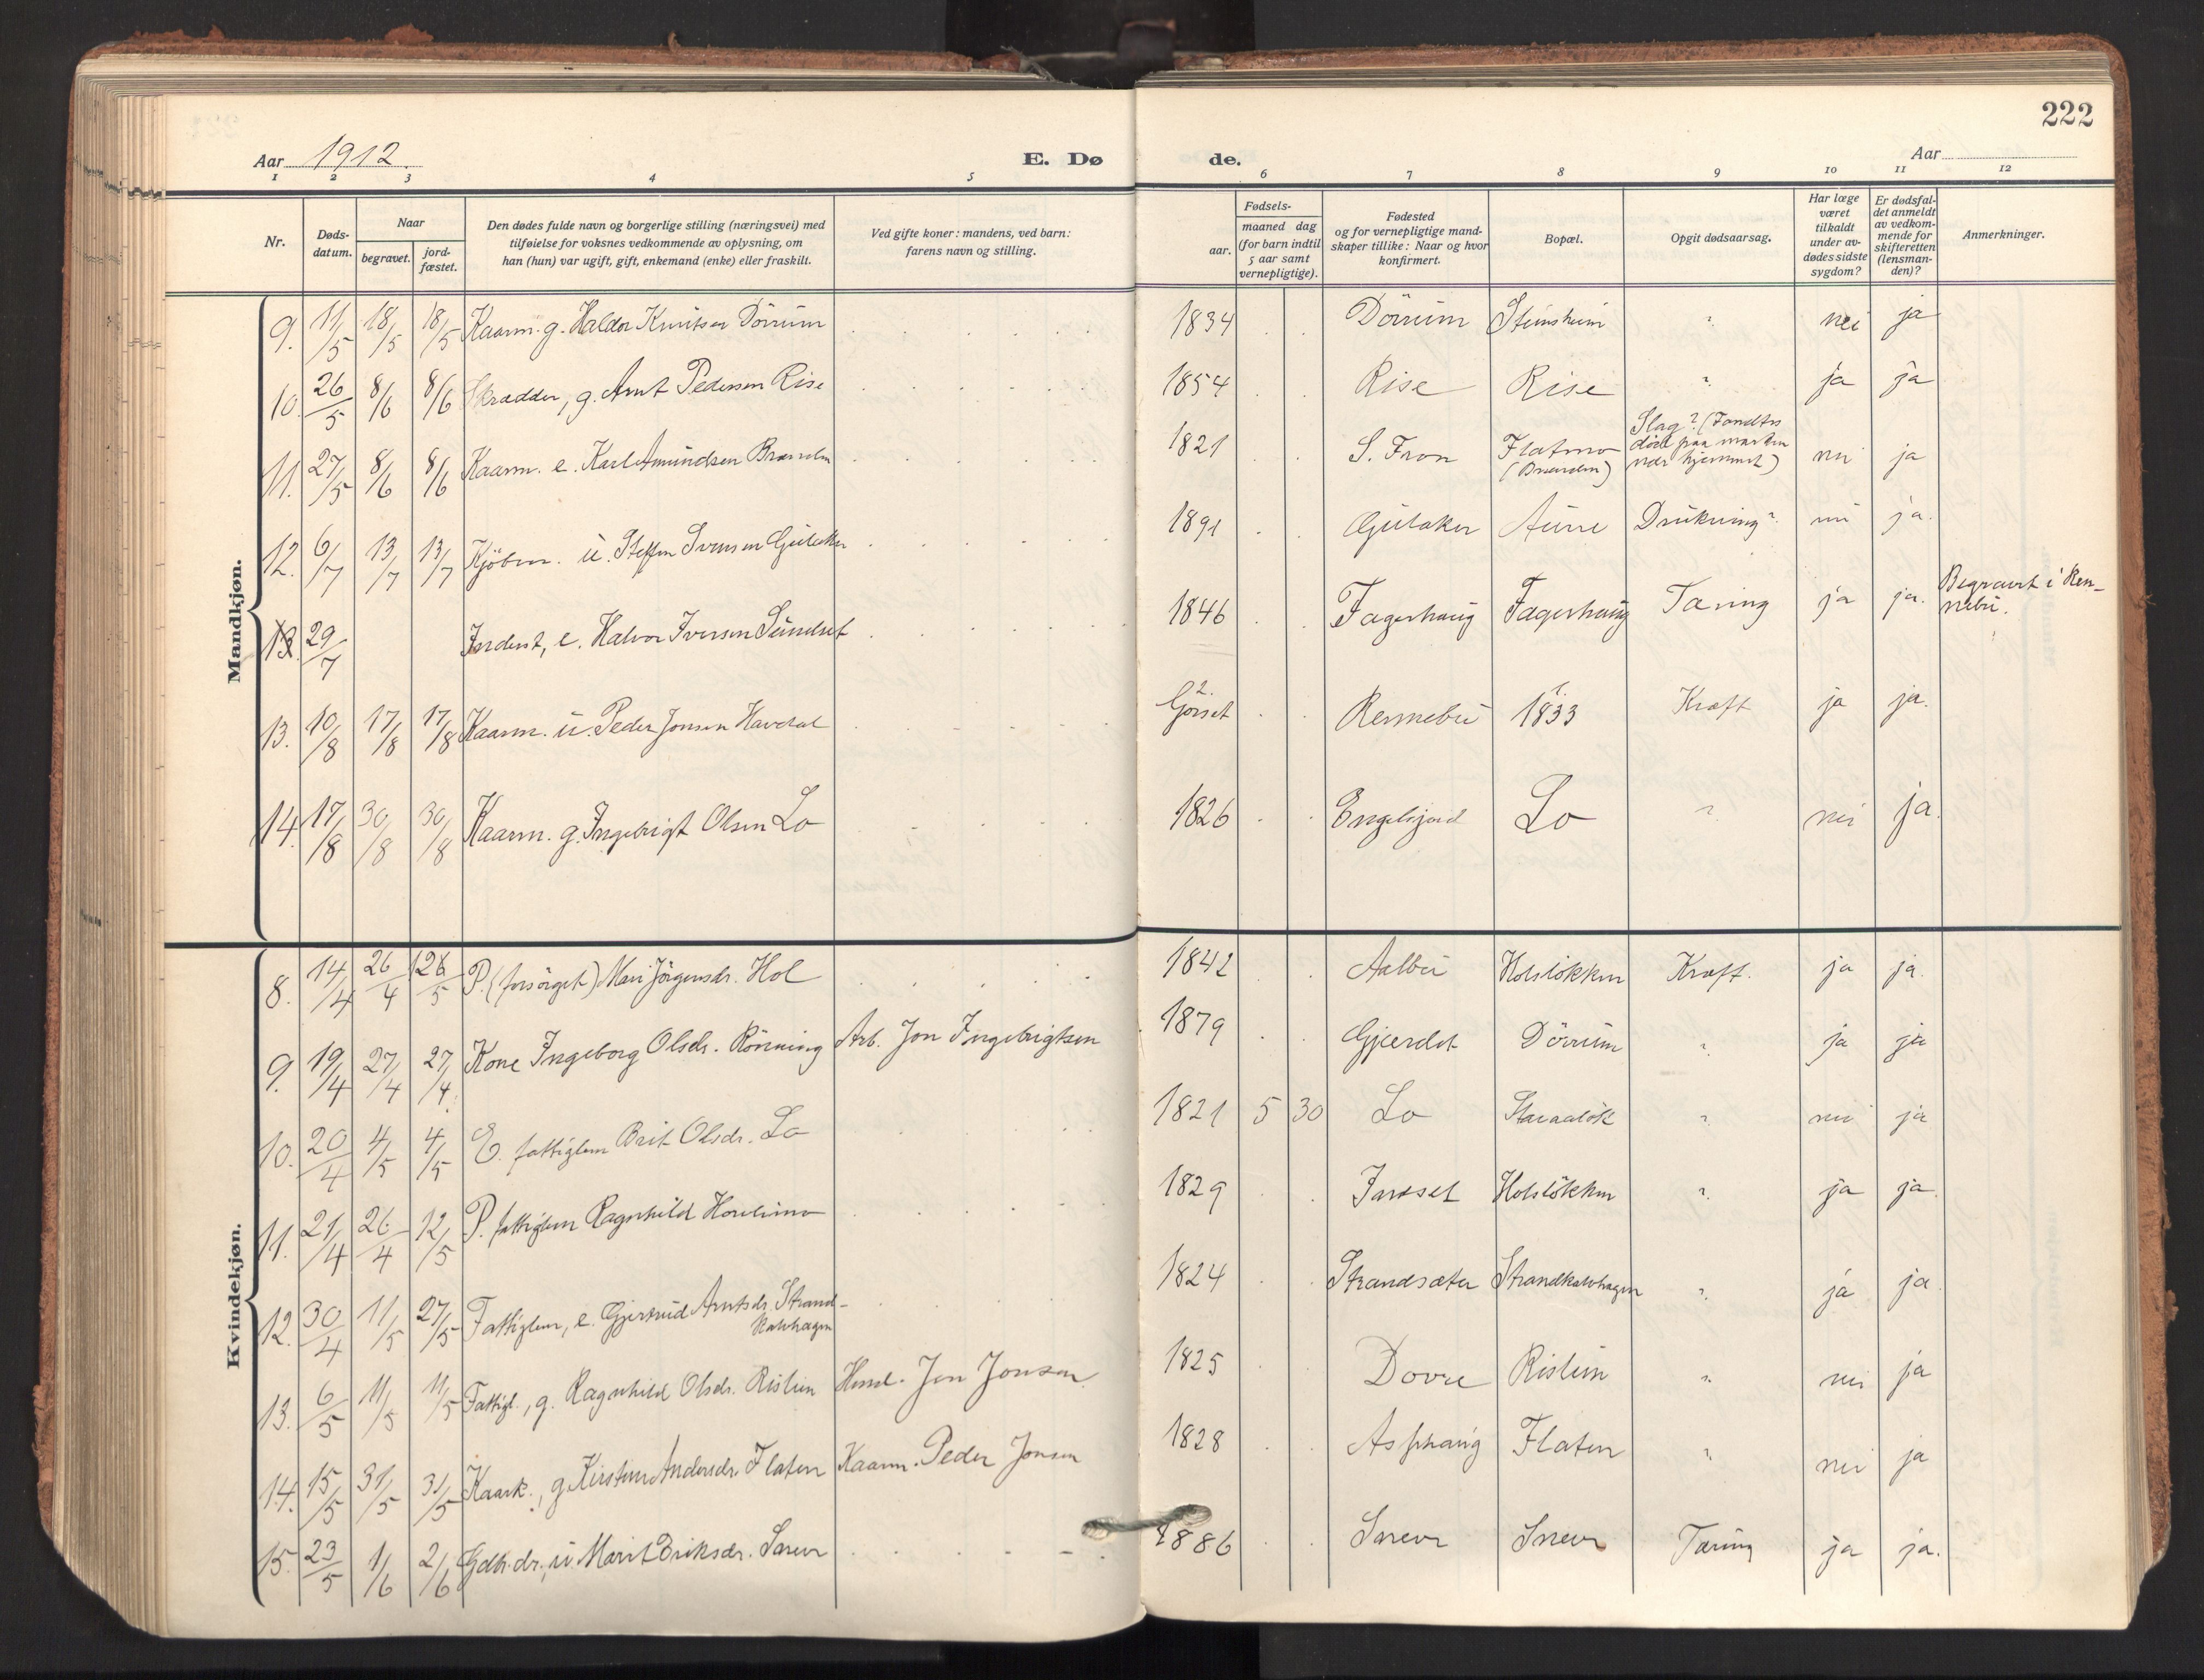 222
Aar 1912. E. Dø de. Aar
1 2 3 4 5 6 7 8 9 10 11 12
Nr.
Døds-
datum.
Naar
begravet.
jord-
fæstet.
Den dødes fulde navn og borgerlige stilling (næringsvei) med
tilføielse for voksnes vedkommende av oplysning, om
han (hun) var ugift, gift, enkemand (enke) eller fraskilt.
Ved gifte koner: mandens, ved barn:
farens navn og stilling.
Fødsels-
aar.
maaned dag
(for barn indtil
5 aar samt
vernepligtige).
Fødested
og for vernepligtige mand-
skaper tillike: Naar og hvor
konfirmert.
Bopæl.
Opgit dødsaarsag.
Har læge
været
tilkaldt
under av-
dødes sidste
sygdom?
Er dødsfal-
det anmeldt
av vedkom-
mende for
skifteretten
(lensman-
den)?
Anmerkninger.
Mandkjøn.
9. 11/5 18/5 18/5 Kaarm. g. Haldor Knutsen Dörrum 1834 Dörrum Steinsheim ? nei ja
10. 26/5 8/6 8/6 Skrædder, g. Arnt Pedersen Rise 1854 Rise Rise ? ja ja
11. 27/5 8/6 8/6 Kaarm. e. Karl Amundsen 1821 S. Fron Flatmo Slag? (Fandtes
død paa marken
nær hjemmet) nei ja
12. 6/7 13/7 13/7 Kjöbm. u. Steffen Svensen Gulaker 1891 Gulaker Aure Drukning? nei ja.
13. 29/7 Inderst, e. Halvor Iversen Sundset 1846 Fagerhaug Fagerhaug Tæring ja ja. Begravet i Ren-
nebu.
13. 10/8 17/8 17/8 Kaarm. u. Peder Jonsen Havdal 2. Görset Rennebu 1. 1833 Kræft ja ja.
14. 17/8 30/8 30/8 Kaarm. g. Ingebrigt Olsen Lo 1826 Engelsjord Lo ? nei ja.
Kvindekjøn.
8. 14/4 26/4 126/5 P. (forsörget) Mari Jörgensdr. Hol 1842 Aalbu Holslökken Kræft. ja ja.
9. 19/4 27/4 27/4. Kone Ingeborg Olsdr. Rönning Arb. Jon Ingebrigtsen 1879 Gjerdet Dörrum ? ja ja
10. 20/4 4/5 4/5 E. fattiglem Brit Olsdr. Lo 1821 5 30 Lo ? nei ja
11. 21/4 26/4 12/5 P. fattiglem Ragnhild 1829 Holslökken ? ja ja.
12. 30/4 11/5 27/5 Fattiglem, e. Gjertrud Arntsdr. Strand-
kalvhagen 1824 Strandsæter Strandkalvhagen ? ja ja
13. 6/5 11/5 11/5 Fattigl., g. Ragnhild Olsdr. Rislien Husm. Jon Jonsen 1825 Dovre Rislien ? nei ja
14. 15/5 31/5 31/5 Kaark., g. Kirstine Andersdr. Flaten Kaarm. Peder Jonsen 1828 Asphaug Flaten ? nei ja
15. 23/5 1/6 2/6 Gdbr. dr., u. Marit Eriksdr. Snever 1886 Snever Snever Tæring ja ja.